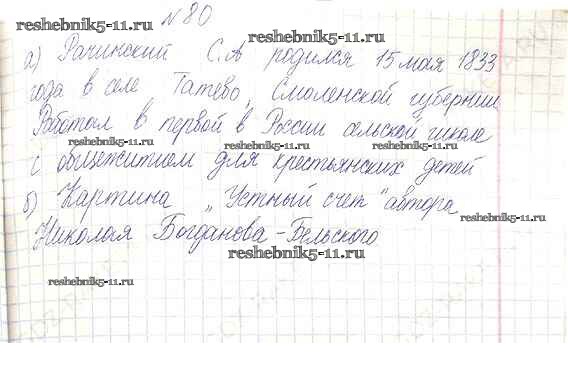 №80
reshebnik5-11.ru
reshebnik5-11.ru
а) Рачинский С.А родился 15 мая 1833
reshebnik5-11.ru
года в селе Татево, Смоленской губернии
reshebnik5-11.ru
Работал в первой в России сельской школе
reshebnik5-11.ru
reshebnik5-11.ru
с общежитием для крестьянских детей
reshebnik5-11.ru
б) Картина „Устный счет" автора
reshebnik5-11.ru
Николая Богданова-Бельского
reshebnik5-11.ru
reshebnik5-11.ru